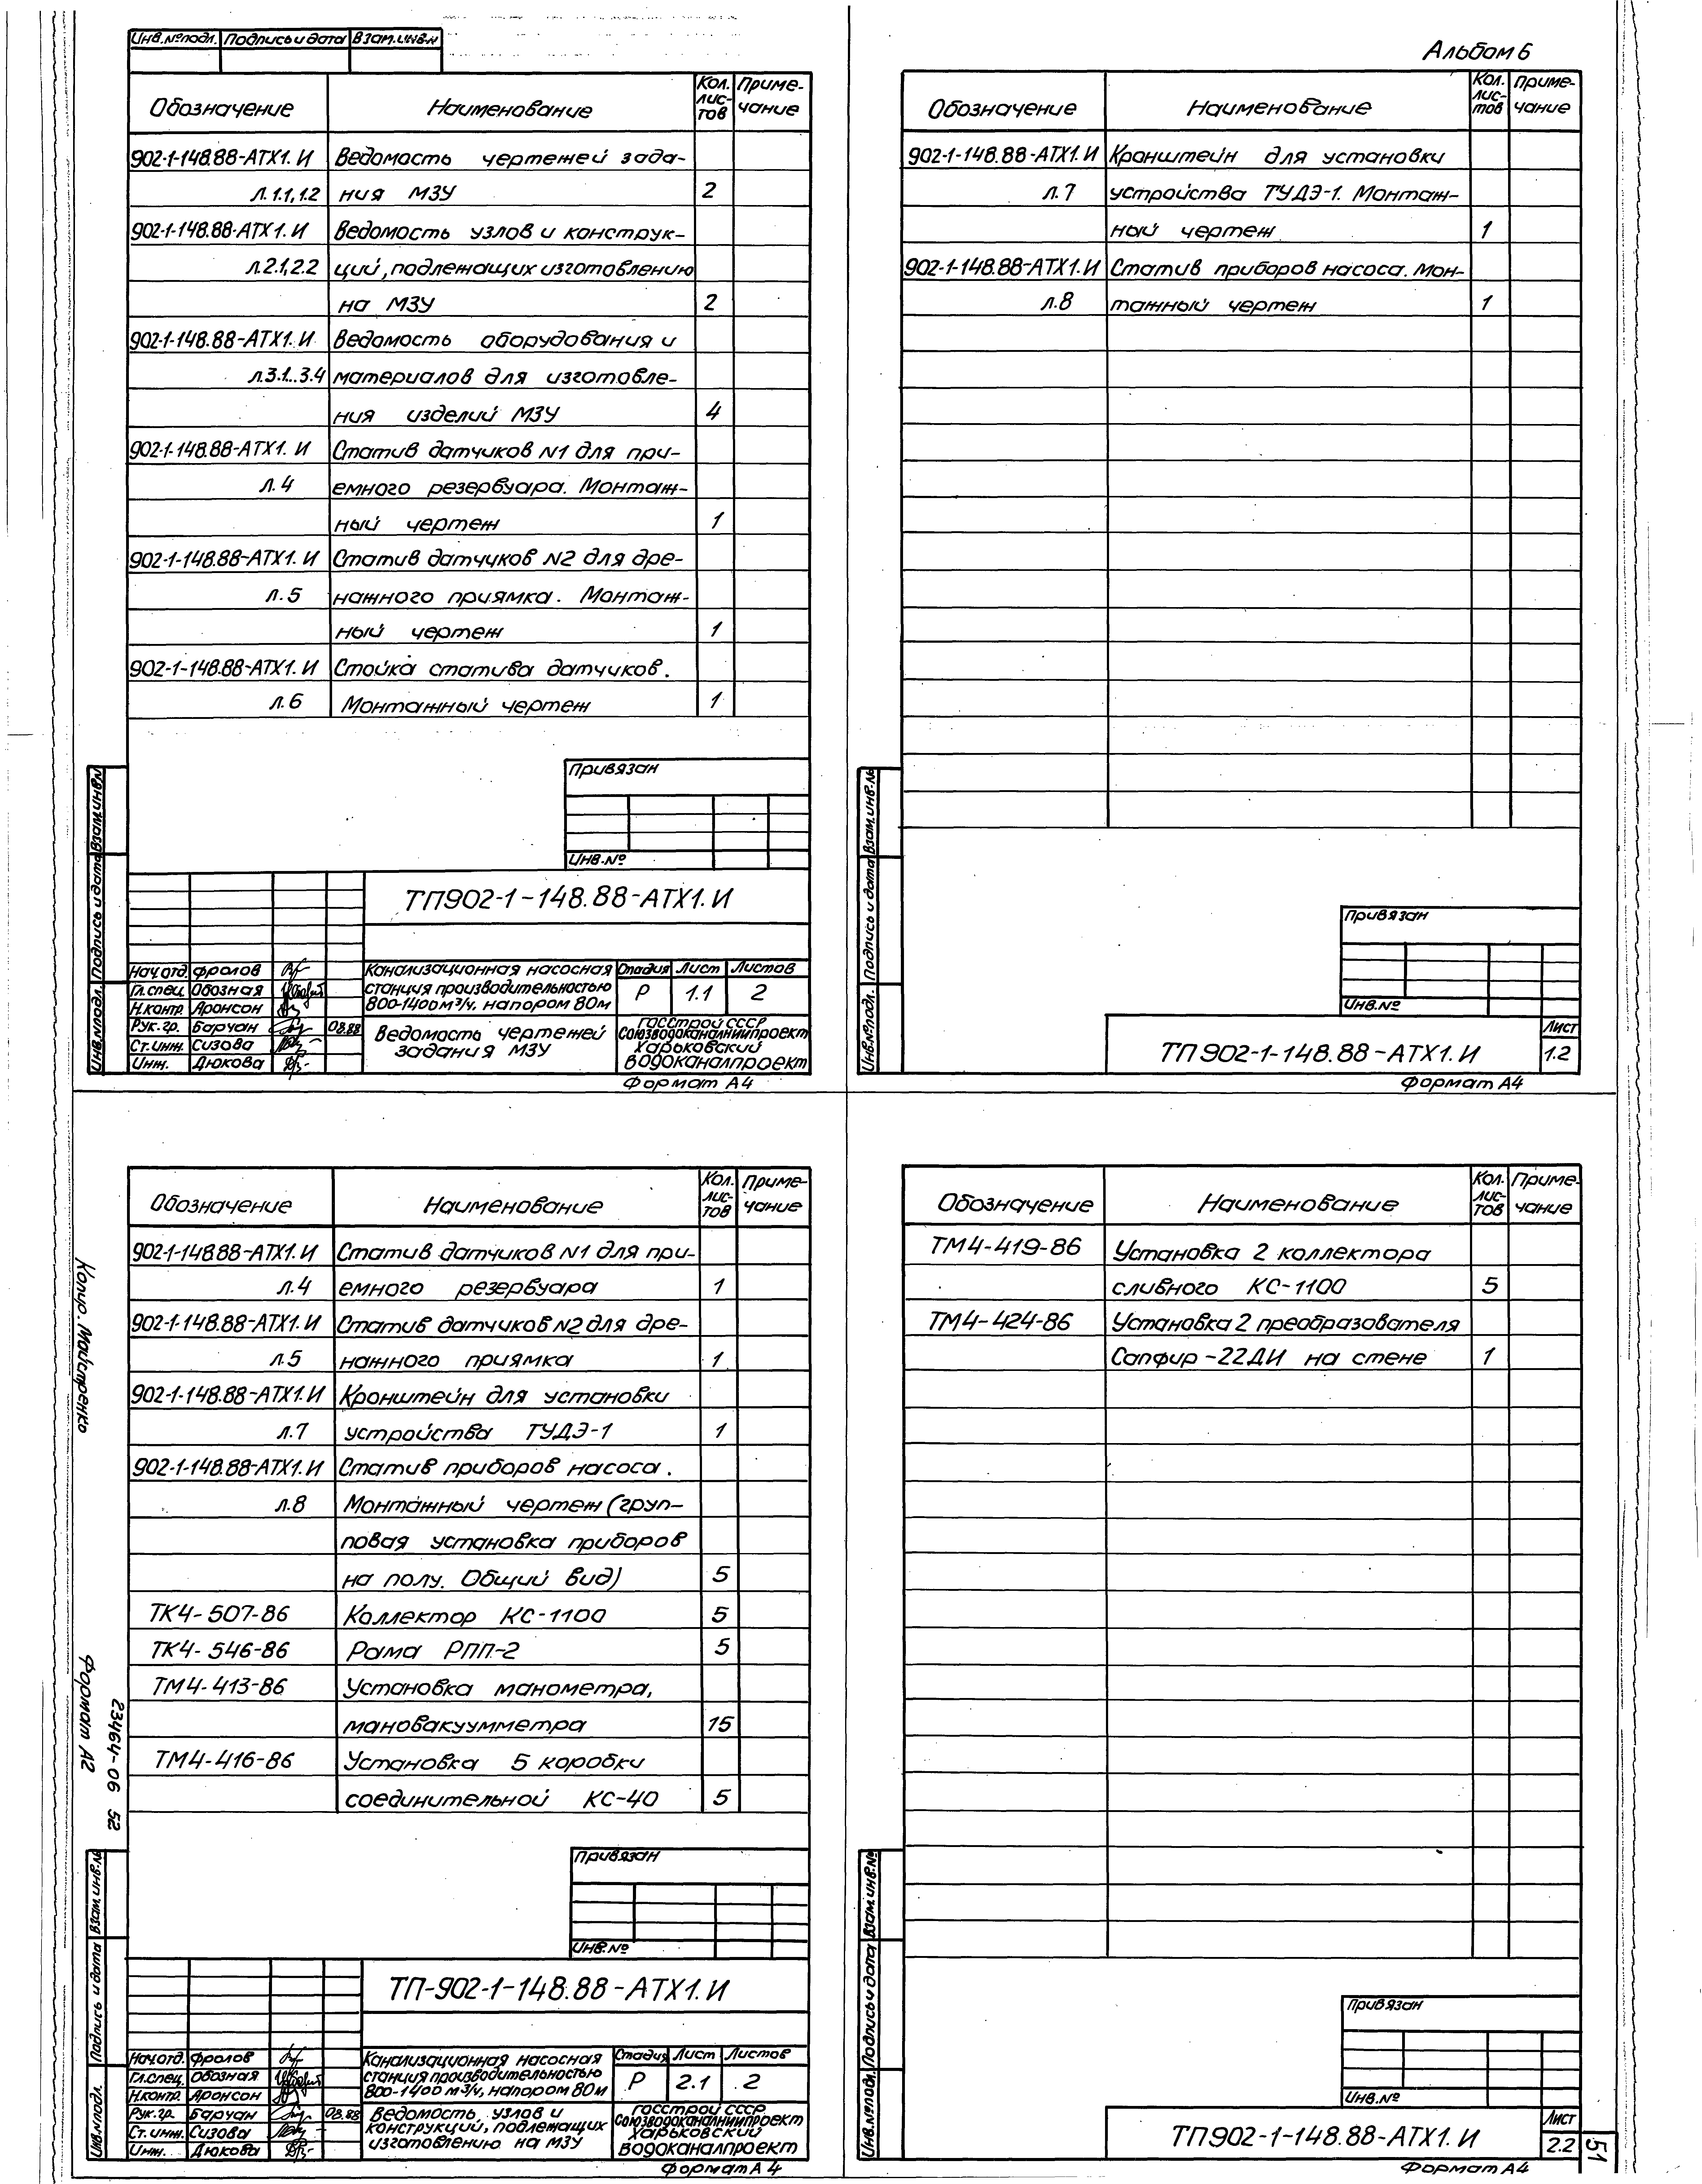 Инв.№ подл. Подпись и дата Взам.инв.№
Альбом 6
Обозначение Наименование Кол. листов Примечание
902-1-148.88-АТХ1.И Ведомость чертежей зада-
л.1.1,1.2 ния МЗУ 2
902-1-148.88-АТХ1.И Ведомость узлов и конструк-
л.2.1,2.2 ций, подлежащих изготовлению
на МЗУ 2
902-1-148.88-АТХ1.И Ведомость оборудования и
л.3.1...3.4 материалов для изготовле-
ния изделий МЗУ 4
902-1-148.88-АТХ1.И Статив датчиков N1 для при-
л.4 емного резервуара. Монтаж-
ный чертеж 1
902-1-148.88-АТХ1.И Статив датчиков N2 для дре-
л.5 нажного приямка. Монтаж-
ный чертеж 1
902-1-148.88-АТХ1.И Стойка статива датчиков.
л.6 Монтажный чертеж 1
Привязан
Инв.№
ТП902-1-148.88-АТХ1.И
Нач.отд. Фролов
Гл.спец. Обозная
Н.контр. Аронсон
Рук.гр. Барчан 08.88
Ст.инж. Сизова
Инж. Дюкова
Канализационная насосная
станция производительностью
800-1400м³/ч, напором 80м
Стадия Лист Листов
Р 1.1 2
Ведомость чертежей
задания МЗУ
Госстрой СССР
Союзводоканалниипроект
Харьковский
Водоканалпроект
Формат А4
Инв.№подл. Подпись и дата Взам.инв.№
Обозначение Наименование Кол. листов Примечание
902-1-148.88-АТХ1.И Кронштейн для установки
л.7 устройства ТУДЭ-1. Монтаж-
ный чертеж 1
902-1-148.88-АТХ1.И Статив приборов насоса. Мон-
л.8 тажный чертеж 1
Привязан
Инв.№
ТП902-1-148.88-АТХ1.И
Лист
1.2
Формат А4
Инв.№подл. Подпись и дата Взам.инв.№
Обозначение Наименование Кол. листов Примечание
902-1-148.88-АТХ1.И Статив датчиков N1 для при-
л.4 емного резервуара 1
902-1-148.88-АТХ1.И Статив датчиков N2 для дре-
л.5 нажного приямка 1
902-1-148.88-АТХ1.И Кронштейн для установки
л.7 устройства ТУДЭ-1 1
902-1-148.88-АТХ1.И Статив приборов насоса.
л.8 Монтажный чертеж (груп-
повая установка приборов
на полу. Общий вид) 5
ТК4-507-86 Коллектор КС-1100 5
ТК4-546-86 Рама РПП-2 5
ТМ4-413-86 Установка манометра,
мановакуумметра 15
ТМ4-416-86 Установка 5 коробки
соединительной КС-40 5
Привязан
Инв.№
ТП-902-1-148.88-АТХ1.И
Нач.отд. Фролов
Гл.спец. Обозная
Н.контр. Аронсон
Рук.гр. Барчан 08.88
Ст.инж. Сизова
Инж. Дюкова
Канализационная насосная
станция производительностью
800-1400м³/ч, напором 80м
Стадия Лист Листов
Р 2.1 2
Ведомость узлов и
конструкций, подлежащих
изготовлению на МЗУ
Госстрой СССР
Союзводоканалниипроект
Харьковский
Водоканалпроект
Формат А4
Инв.№подл. Подпись и дата Взам.инв.№
Копир. Майстренко
Формат А2
23464-06 52
Обозначение Наименование Кол. листов Примечание
ТМ4-419-86 Установка 2 коллектора
сливного КС-1100 5
ТМ4-424-86 Установка 2 преобразователя
Сапфир-22ДИ на стене 1
Привязан
Инв.№
ТП902-1-148.88-АТХ1.И
Лист
2.2
Формат А4
Инв.№подл. Подпись и дата Взам.инв.№
51